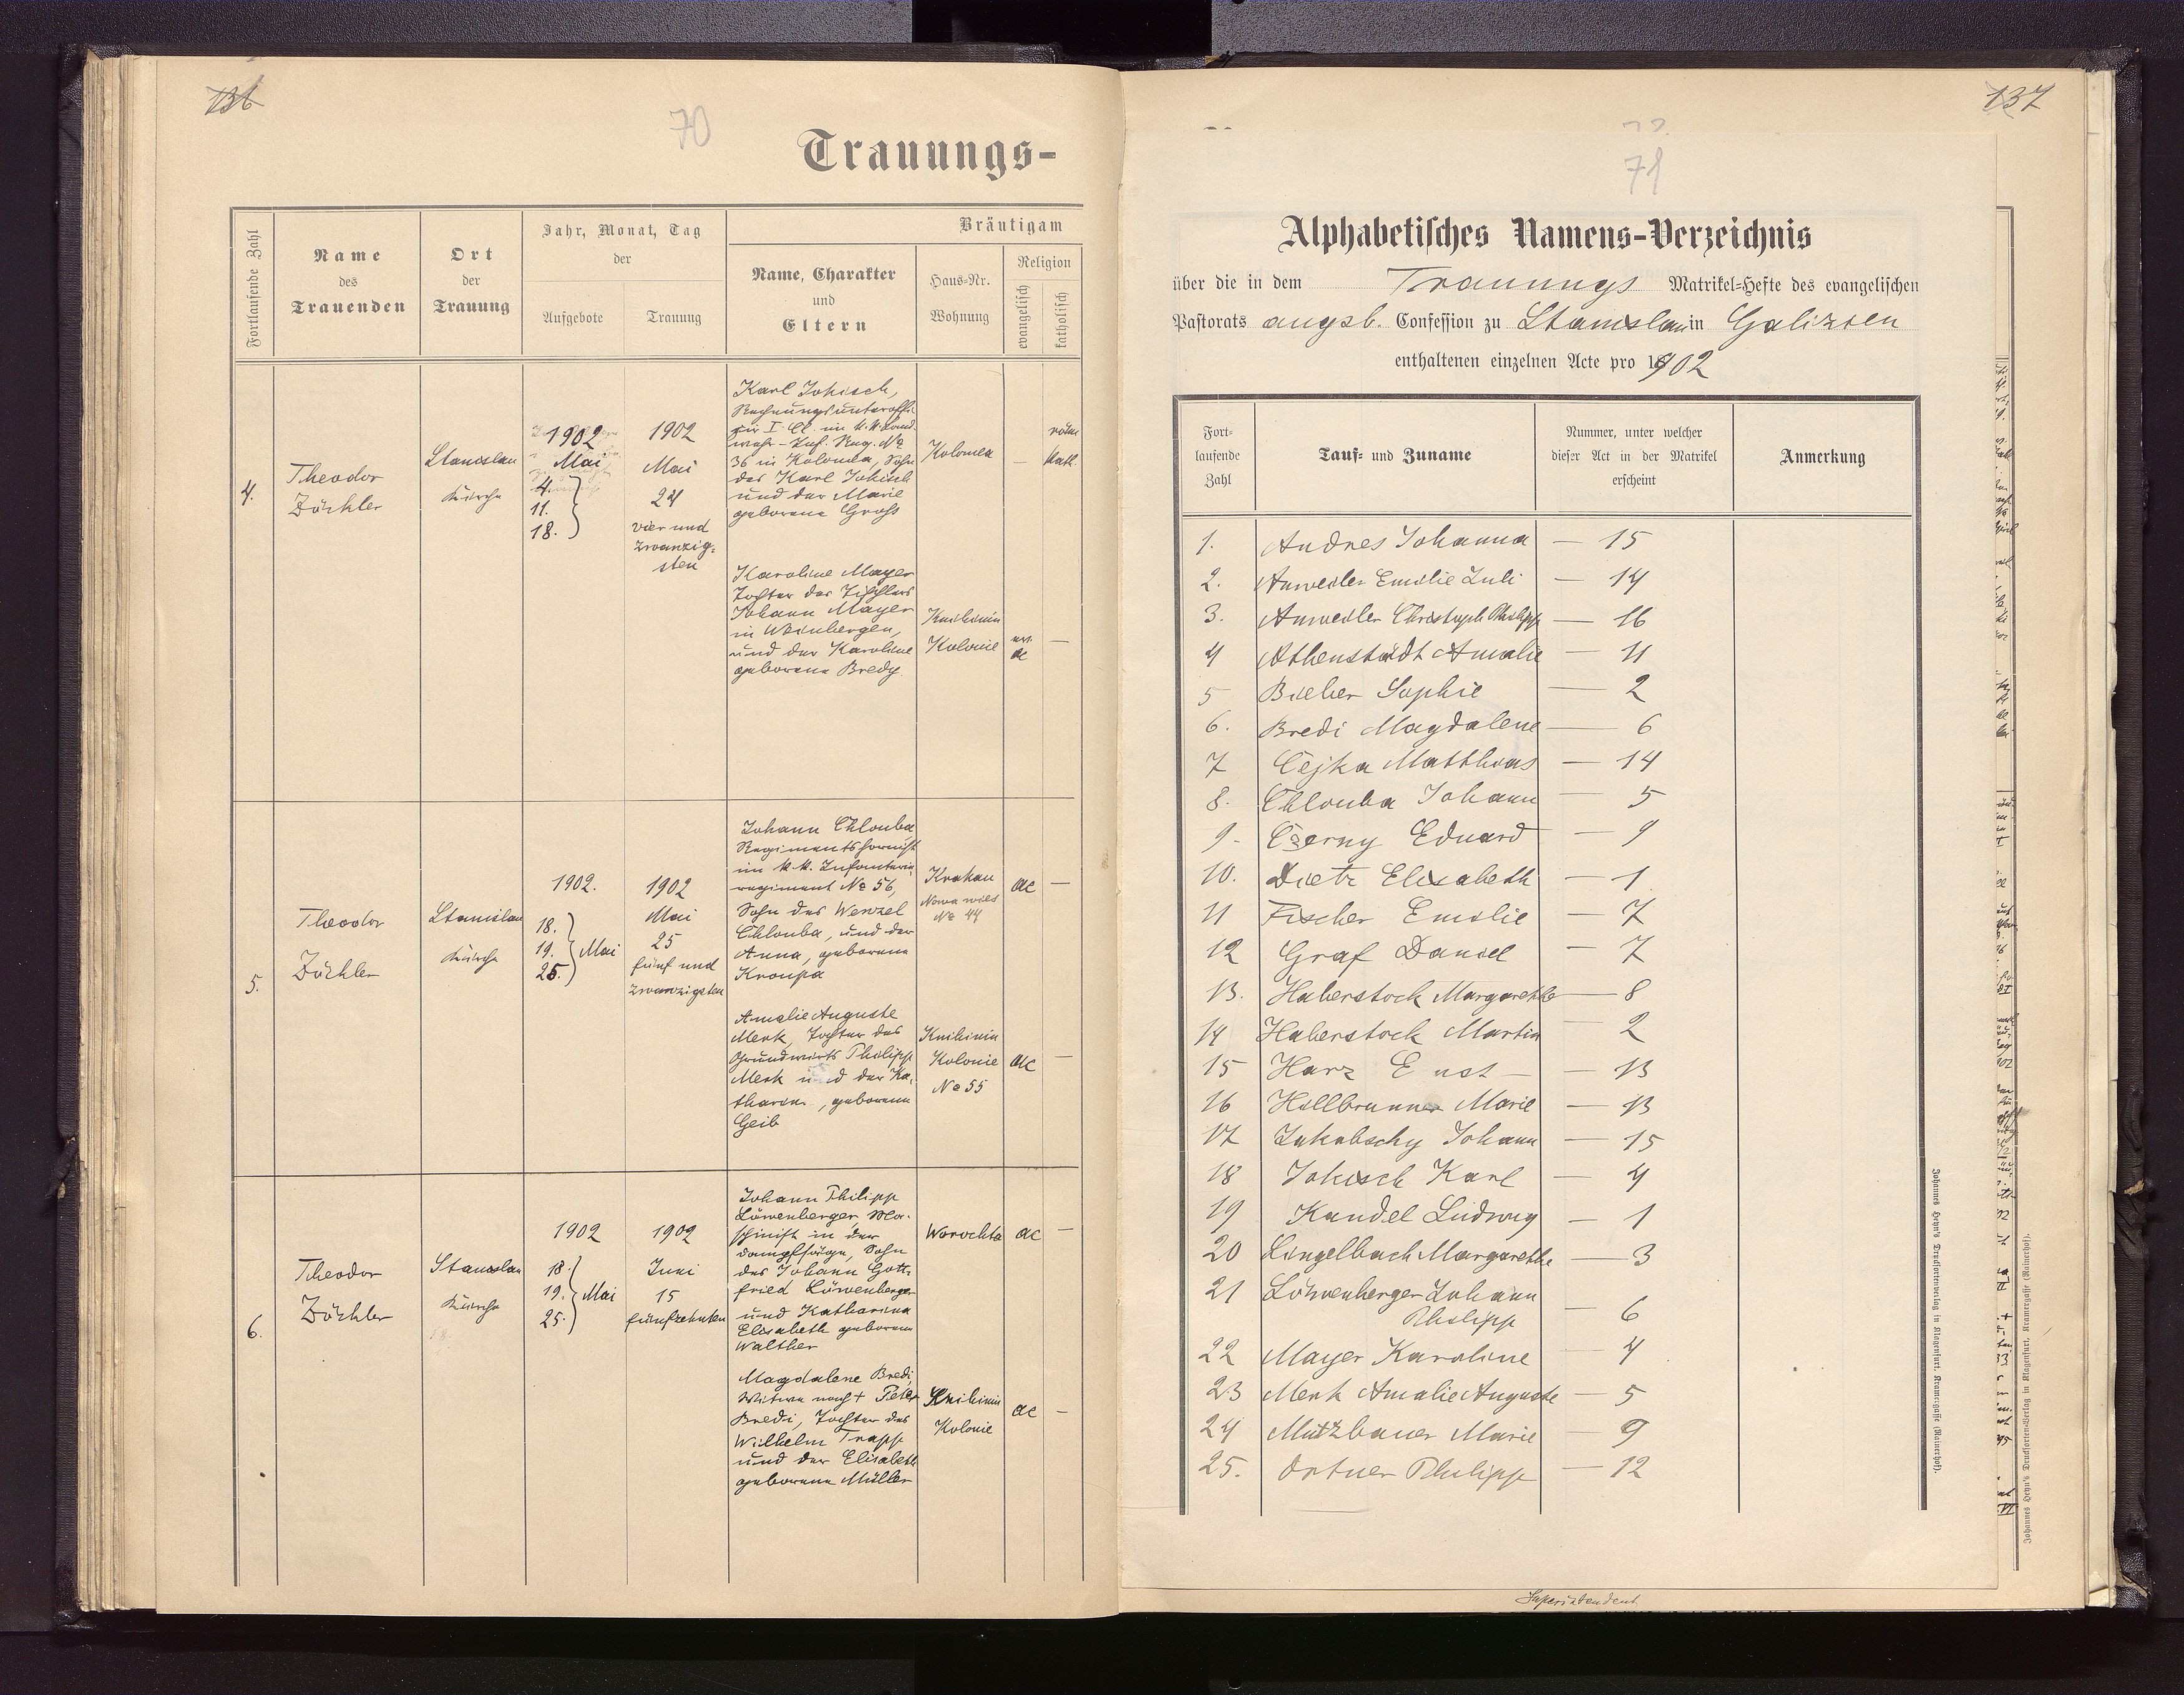 136
70
Trauungs-
Fortlaufende Zahl
Name
des
Trauenden
Ort
der
Trauung
Jahr, Monat, Tag
der
Aufgebote
Trauung
Bräutigam
Name, Charakter
und
Eltern
Haus-Nr.
Wohnung
Religion
evangelisch
katholisch
4.
Theodor
Zöckler
Stanislau
Kirche
1902
Mai
4.
11.
18.
1902
Mai
24
vier und
zwanzig-
sten
Karl Jokisch,
Rechnungsunteroffi-
zier I Cl. im k. k. Land-
wehr-Inf. Reg. No
36 in Kolomea, Sohn
des Karl Jokisch
und der Marie
geborene Gross
Kolomea
—
röm
kath.
Karoline Mayer
Tochter des Tischlers
Johann Mayer
in Weinbergen,
und der Karoline
geborene Bredy
Knihinin
Kolonie
ev.
ac
—
5.
Theodor
Zöckler
Stanislau
Kirche
1902.
18.
19. Mai
25.
1902
Mai
25
fünf und
zwanzigsten
Johann Chlouba
Regimentshornist
im k. k. Infanterie
regiment No 56,
Sohn des Wenzel
Chlouba, und der
Anna, geborene
Kroupa
Krakau
Nowa wies
No 44
ac
—
Amalie Auguste
Merk, Tochter des
Grundwirts Philipp
Merk und der Ka-
tharina, geborene
Geib
Knihinin
Kolonie
No 55
ac
—
6.
Theodor
Zöckler
Stanislau
Kirche
1902
18.
19. Mai
25.
1902
Juni
15
fünfzehnten
Johann Philipp
Löwenberger, Ma-
schinist in der
Dampfsäge, Sohn
des Johann Gott-
fried Löwenberger
und Katharina
Elisabeth geborene
Walther
Worochta
ac
—
Magdalene Bredi,
Witwe nach † Peter
Bredi, Tochter des
Wilhelm Trapp
und der Elisabeth
geborene Müller
Knihinin
Kolonie
ac
—
137
71
Alphabetisches Namens-Verzeichnis
über die in dem Trauungs Matrikel-Hefte des evangelischen
Pastorats augsb. Confession zu Stanislau in Galizien
enthaltenen einzelnen Acte pro 1902
Fort-
laufende
Zahl
Tauf- und Zuname
Nummer, unter welcher
dieser Act in der Matrikel
erscheint
Anmerkung
1. Andres Johanna — 15
2. Anweiler Emilie Juli — 14
3. Anweiler Christoph Philipp — 16
4 Athenstädt Amalie — 11
5 Bieber Sophie — 2
6. Bredi Magdalene — 6
7 Cejka Matthias — 14
8. Chlouba Johann — 5
9. Czerny Eduard — 9
10. Dietz Elisabeth — 1
11 Fischer Emilie — 7
12 Graf Daniel — 7
13. Haberstock Margarethe — 8
14 Haberstock Martin — 2
15 Harz E nst — 13
16 Hellbrunner Marie — 13
17 Jakubschy Johann — 15
18 Jokisch Karl — 4
19 Kandel Ludwig — 1
20 Lingelbach Margarethe — 3
21 Löwenberger Johann
Philipp — 6
22 Mayer Karoline — 4
23 Merk Amalie Auguste — 5
24 Mützbauer Marie — 9
25. Ortner Philipp — 12
Johannes Heyn's Drucksortenverlag in Klagenfurt, Kramergasse (Rainerhof).
Johannes Heyn's Drucksorten-Verlag in Klagenfurt, Kramergasse (Rainerhof).
Superintendent